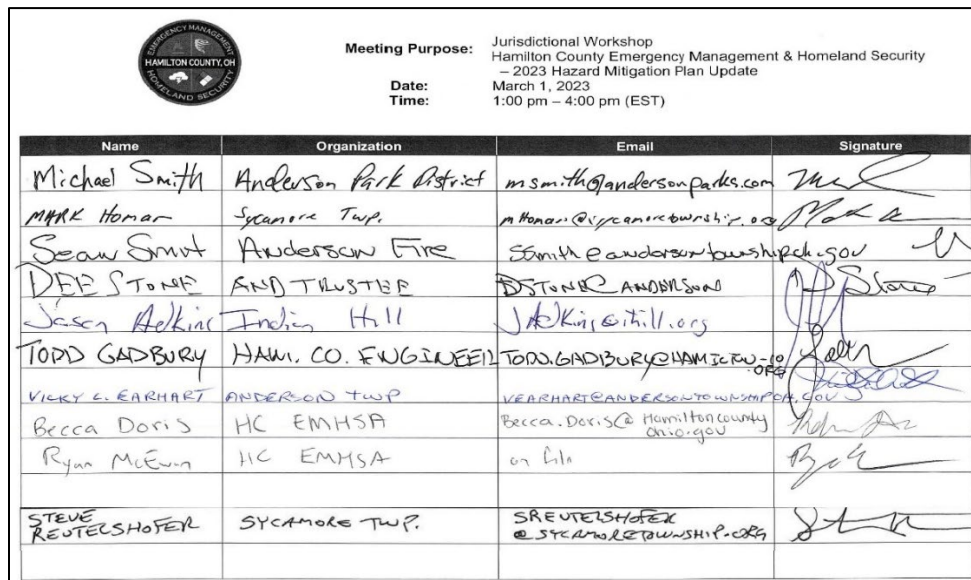 EMERGENCY MANAGEMENT
HAMILTON COUNTY, OH
HOMELAND SECURITY
Meeting Purpose: Jurisdictional Workshop
Hamilton County Emergency Management & Homeland Security
– 2023 Hazard Mitigation Plan Update
Date: March 1, 2023
Time: 1:00 pm – 4:00 pm (EST)
Name Organization Email Signature
Michael Smith Anderson Park District msmith@andersonparks.com
MARK Homan Sycamore Twp.
Sean Anderson Fire
DEE STONE AND TRUSTEE DSTONE@ANDERSON Stone
Jason Adkins Indian Hill JAdkins@ihill.org
TODD GADBURY HAM. CO. ENGINEER TODD.GADBURY@HAMILTON-CO
.ORG
VICKY L. EARHART ANDERSON TWP VEARHART@ANDERSONTOWNSHIPOH.GOV
Becca Doris HC EMHSA Becca.Doris@Hamiltoncounty
Ohio.gov
Ryan McEwan HC EMHSA on file
STEVE
REUTELSHOFER SYCAMORE TWP. SREUTELSHOFER
@SYCAMORETOWNSHIP.ORG